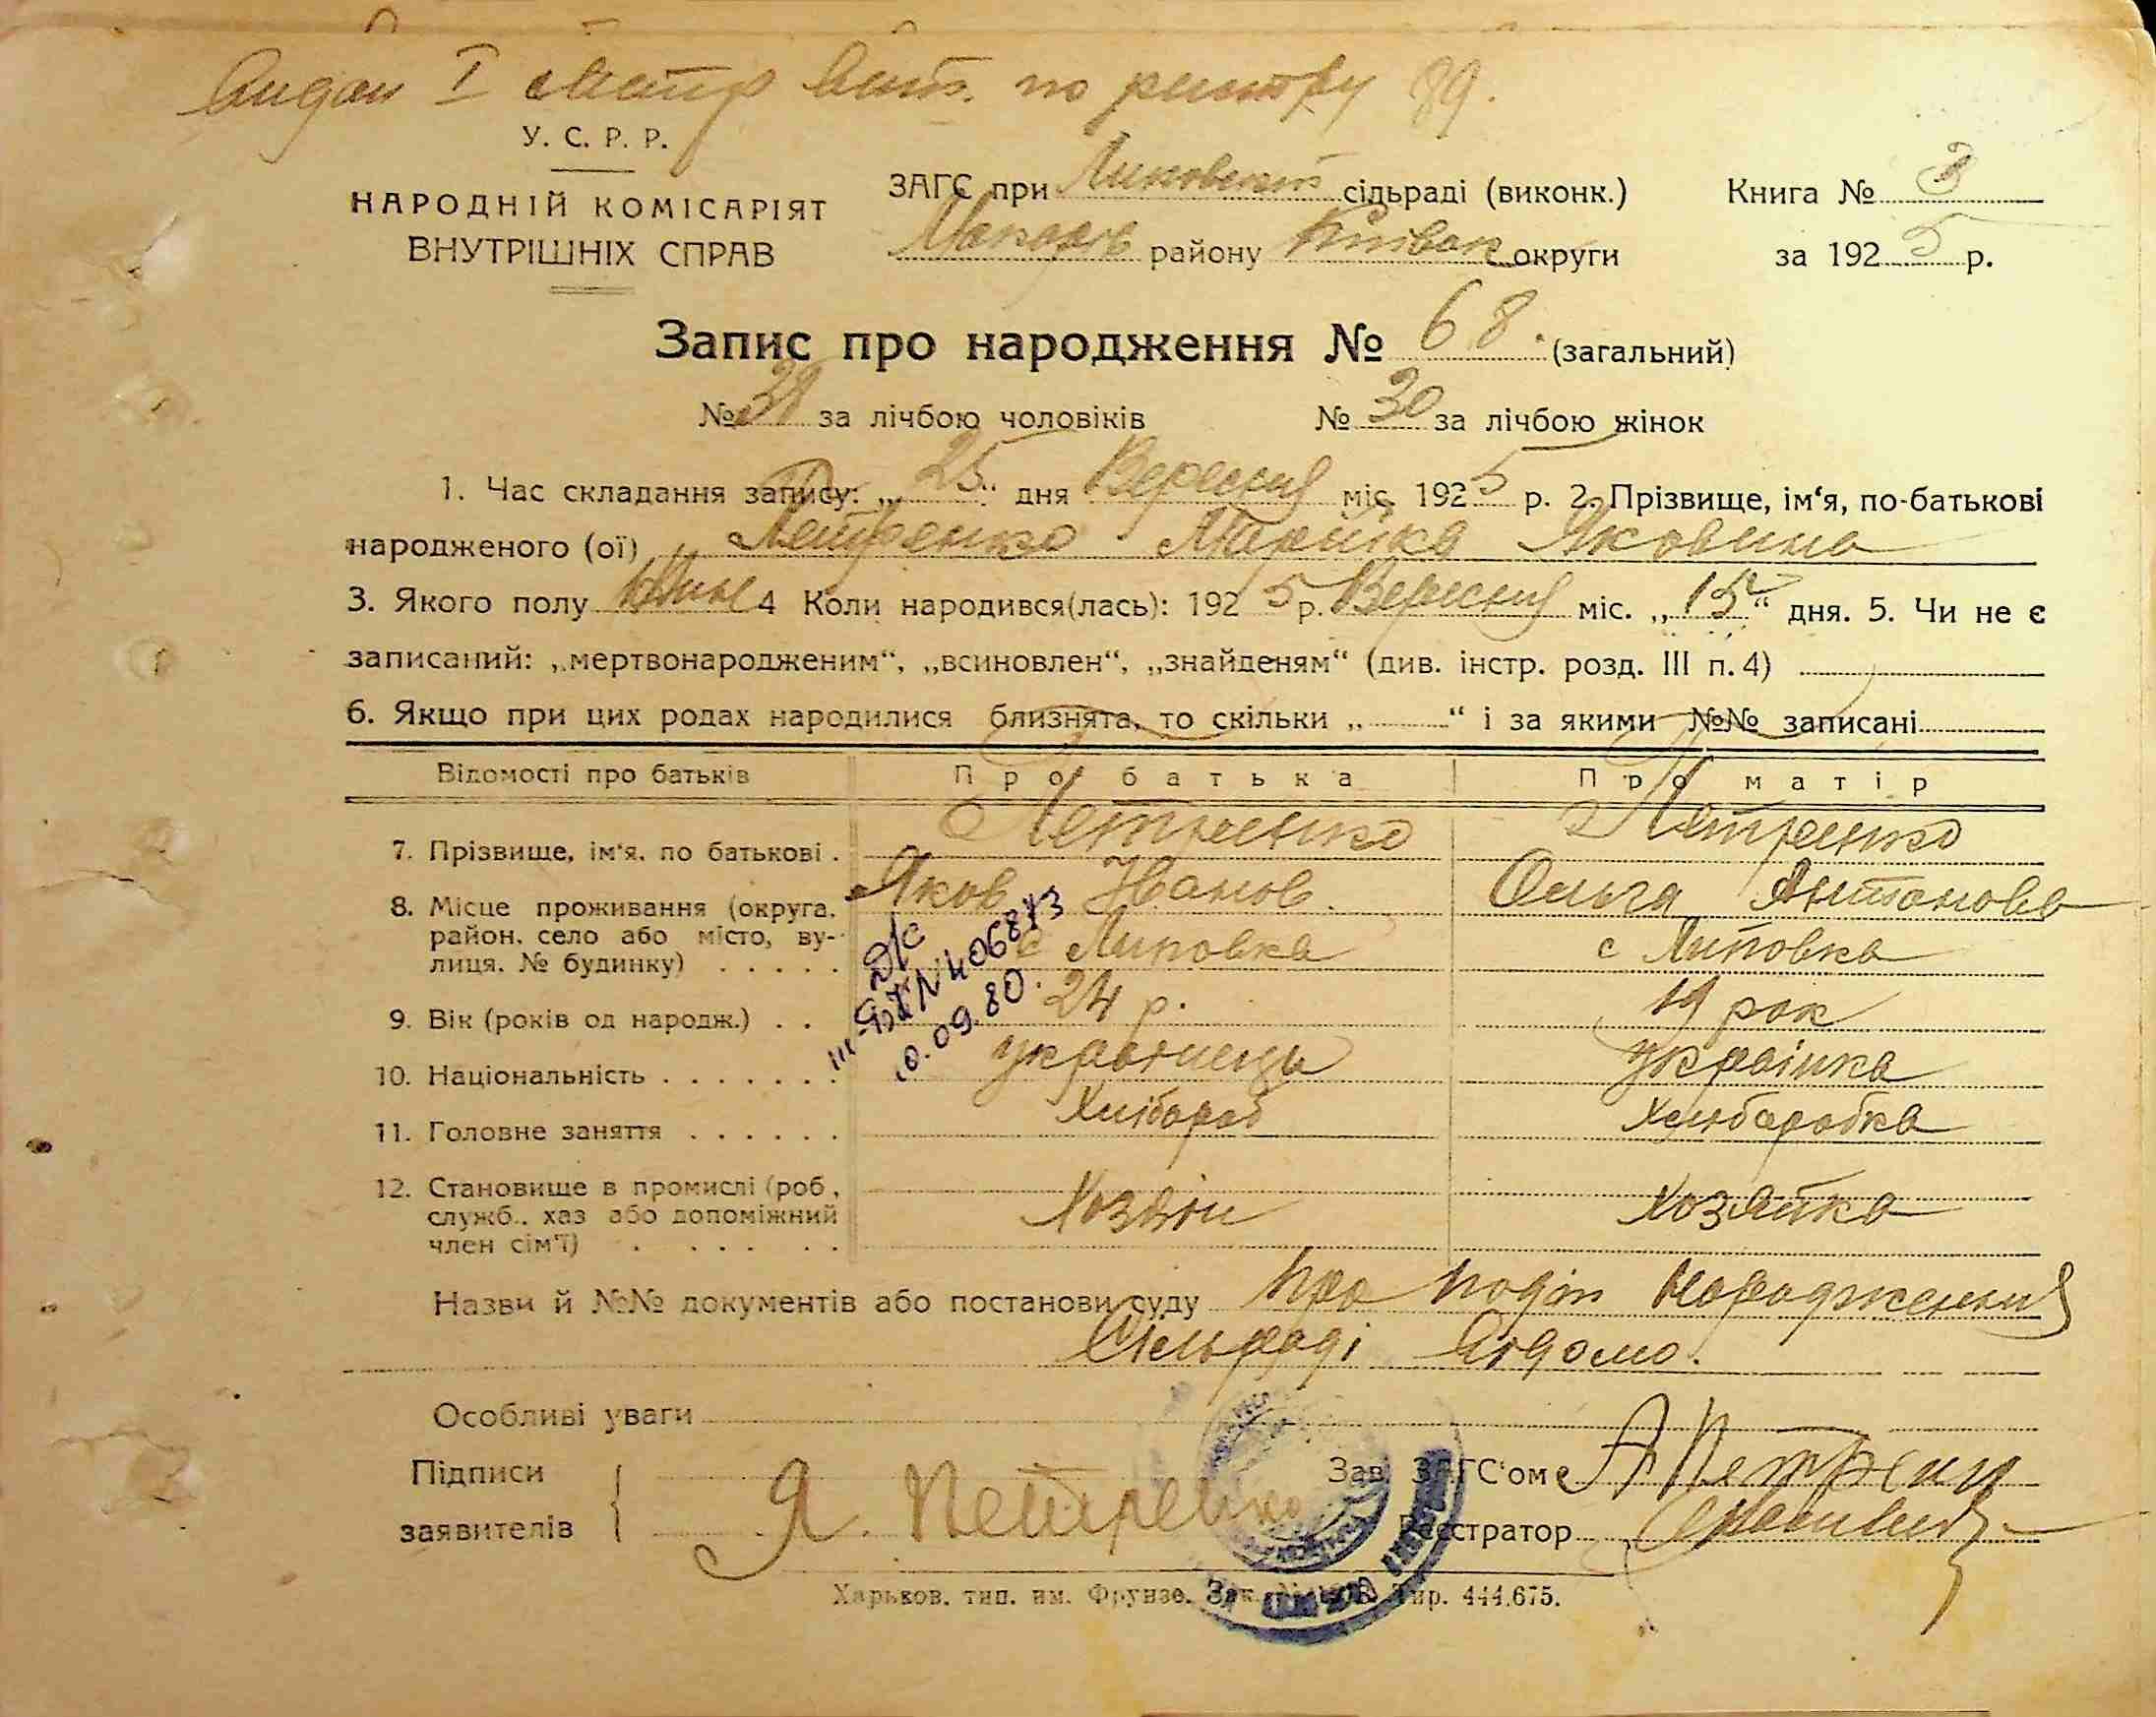 по 89.
У. С. Р. Р.
НАРОДНІЙ КОМІСАРІЯТ
ВНУТРІШНІХ СПРАВ
ЗАГС при Липовский сільраді (виконк.)
Макарів району Київск округи
Книга № 3
за 1925 р.
Запис про народження № 68. (загальний)
№ 38 за лічбою чоловіків № 30 за лічбою жінок
1. Час складання запису: „25“ дня Вересня міс. 1925 р. 2. Прізвище, ім‘я, по-батькові
народженого (ої) Петренко Марійка Яковина
3. Якого полу 4 Коли народився(лась): 1925 р. Вересня міс. „15“ дня. 5. Чи не є
записаний: „мертвонародженим“, „всиновлен“, „знайденям“ (див. інстр. розд. III п. 4)
6. Якщо при цих родах народилися близнята, то скільки „ “ і за якими №№ записані
Відомості про батьків Про батька Про матір
7. Прізвище, ім‘я, по батькові . Петренко Петренко
Яков Іванов. Ольга Антонова
8. Місце проживання (округа, район, село або місто, вулиця, № будинку) . . . . . с Липовка с Липовка
9. Вік (років од народж.) . . 24 р. 19 рок
10. Національність . . . . . . . українець українка
11. Головне заняття . . . . . . Хлібороб Хлібаробка
12. Становище в промислі (роб, служб., хаз або допоміжний член сім‘ї) . . . . . . Хозяін Хозяйка
№ 406873
10.09.80.
Назви й №№ документів або постанови суду про подію народження
Сільраді відомо.
Особливі уваги
Підписи
заявителів
Я. Петренко
Зав. ЗАГС‘ом
Реєстратор
Харьков. тип. им. Фрунзе. Зак. Тир. 444.675.